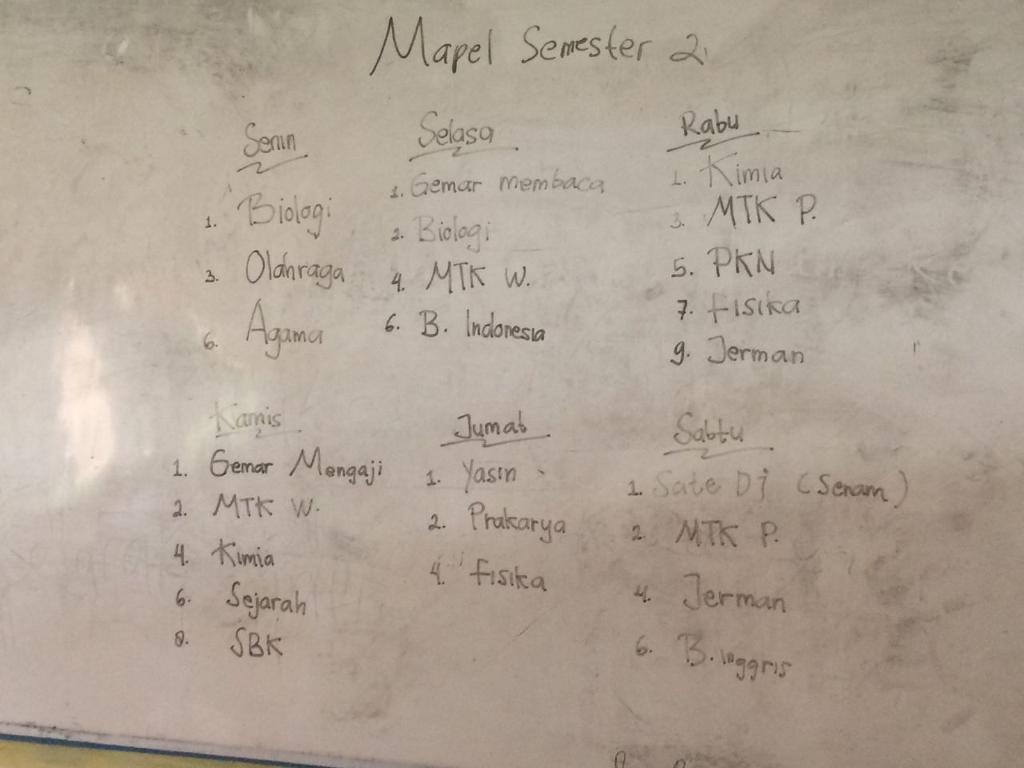 Mapel Semester 2.
Senin
1. Biologi
3. Olahraga
6. Agama
Selasa
1. Gemar membaca
2. Biologi
4. MTK W.
6. B. Indonesia
Rabu
1. Kimia
3. MTK P.
5. PKN
7. Fisika
9. Jerman
Kamis
1. Gemar Mengaji
2. MTK W.
4. Kimia
6. Sejarah
8. SBK
Jumat
1. Yasin
2. Prakarya
4. Fisika
Sabtu
1. Sate Dj (Senam)
2. MTK P.
4. Jerman
6. B. Inggris